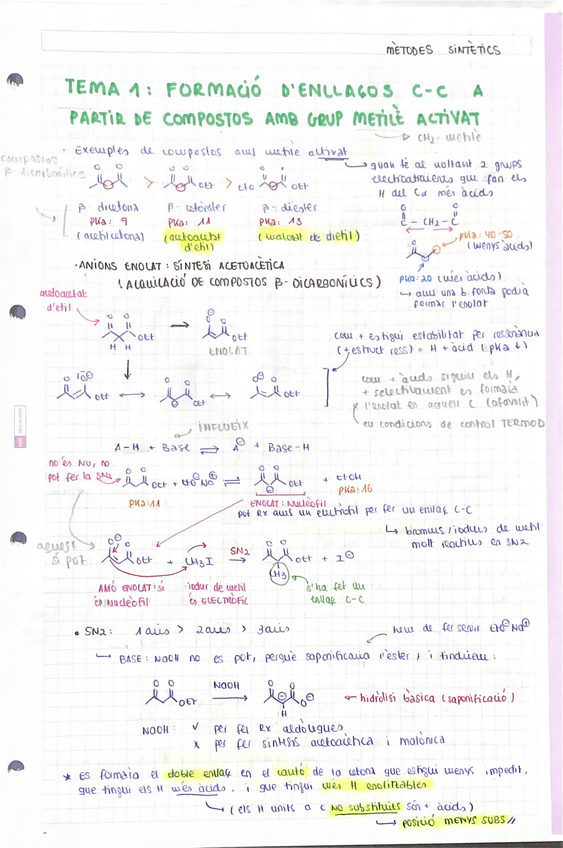 MÈTODES SINTÈTICS
TEMA 1: FORMACIÓ D'ENLLAÇOS C-C A
PARTIR DE COMPOSTOS AMB GRUP METILÈ ACTIVAT
→ CH2- metilè
· Exemples de compostos amb metilè activat
compostos
β-dicarbonílics
→ quan té al voltant 2 grups
electroatraients que fan els
H del Cα més àcids
O O > O O OEt > EtO O O OEt
β-dicetona β-cetoéster β-diester
pKa: 9 pKa: 11 pKa: 13
(acetilcetona) (acetoacetat (malonat de dietil)
d'etil)
O O
C - CH2 - C
pKa: 40-50
(menys àcids)
pKa: 20 (més àcids)
→ amb una b. forta podrà
formar l'enolat
· ANIONS ENOLAT: SÍNTESI ACETOACÈTICA
(ALQUILACIÓ DE COMPOSTOS β-DICARBONÍLICS)
acetoacetat
d'etil
O O OEt → O⊖ O OEt
H H
ENOLAT
com + estigui estabilitat per ressonància
(+ estruct ress) = H + àcid (↓pKa ↓)
O O⊖ OEt ↔ O O OEt ↔ O⊖ O OEt
com + àcids siguin els H,
+ selectivament es formarà
l'enolat en aquell C (afavorit)
en condicions de control TERMOD
INFLUEIX
A-H + Base ⇌ A⊖ + Base-H
no és Nu, no
pot fer la SN2
O O OEt + EtO⊖ Na⊕ ⇌ O O OEt + EtOH
pKa: 11 pKa: 16
ENOLAT: Nucleòfil
pot Rx amb un electròfil per fer un enllaç C-C
→ bromurs/iodurs de metil
molt reactius en SN2
aquest
sí pot
O⊖ O OEt + CH3I SN2 → O O OEt + I⊖
CH3
AMB ENOLAT: sí
és Nucleòfil
iodur de metil
és ELECTRÒFIL
s'ha fet un
enllaç C-C
• SN2: 1aris > 2aris > 3aris
hem de fer servir EtO⊖Na⊕
→ BASE: NaOH no es pot, perquè saponificaria l'èster, i tindríem:
O O OEt NaOH → O O O⊖
H
← hidròlisi bàsica (saponificació)
NaOH: ✓ per fer Rx aldòliques
x per fer síntesis acetoacètica i malònica
* Es formarà el doble enllaç en el cantó de la cetona que estigui menys impedit,
que tingui els H més àcids, i que tingui més H enolitzables
→ (els H units a C NO substituïts són + àcids)
→ POSICIÓ MENYS SUBS //